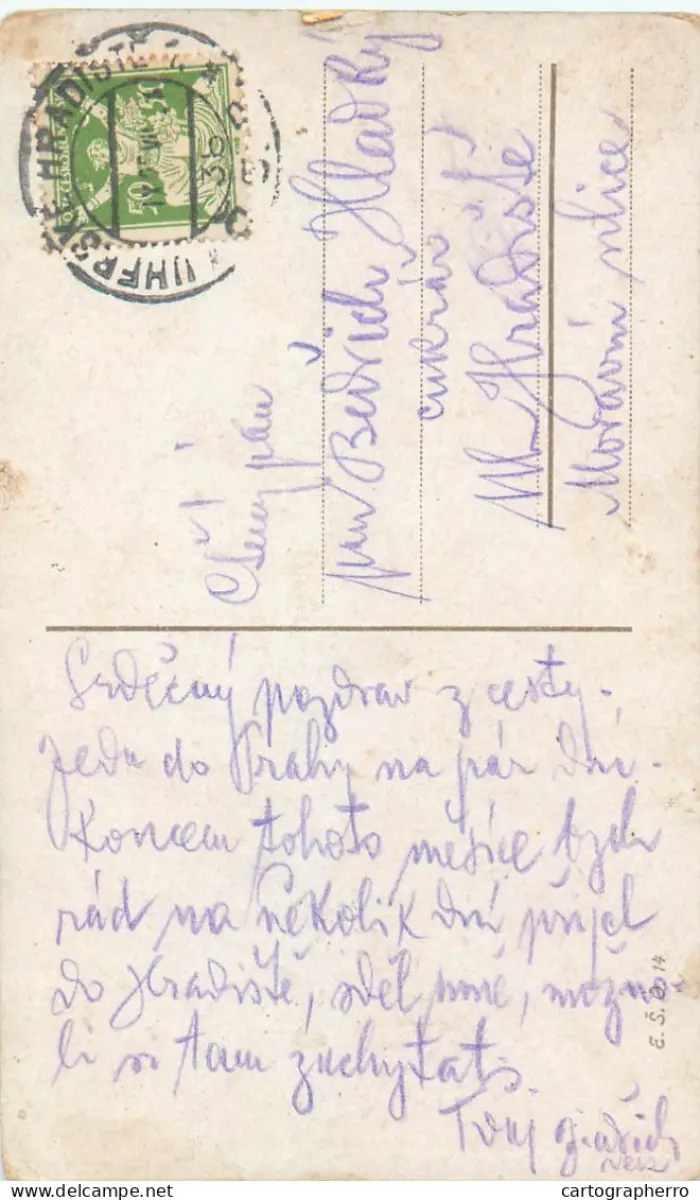 UHERSKÉ HRADIŠTĚ
50
Ctěný pán
pan Bedřich Hladký
cukrář
Uh. Hradiště
Moravní ulice
Srdečný pozdrav z cesty.
Jedu do Prahy na pár dní.
Koncem tohoto měsíce bych
rád na několik dní přijel
do Hradiště, sděl mně, možno-
li si tam zachytati.
Tvůj Jindřich
E. Š. P. 14
delcampe.net
cartographerro